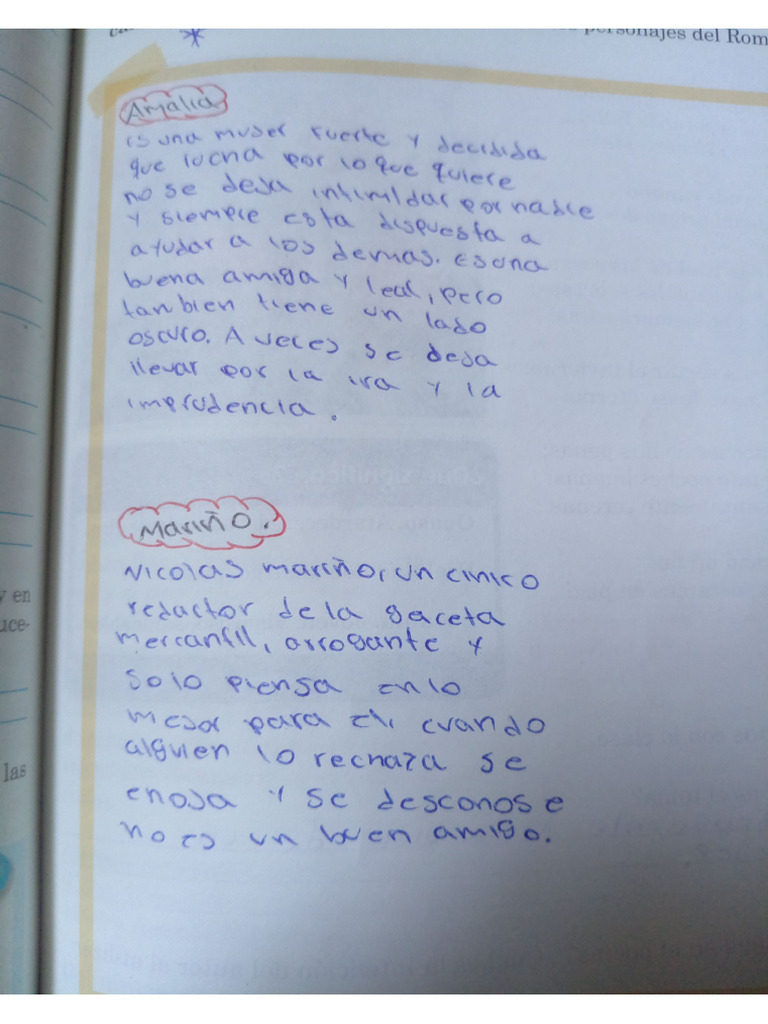 personajes del Rom
Amalia
es una muger fuerte y decidida
que lucha por lo que quiere
no se deja intimidar por nadie
y siempre esta dispuesta a
ayudar a los demas. es una
buena amiga y leal, pero
tanbien tiene un lado
oscuro. A veces se deja
llevar por la ira y la
imprudencia.
Mariño.
Nicolas mariño, un cinico
redactor de la gaceta
mercantil, arrogante y
solo piensa en lo
mejor para el, cuando
alguien lo rechaza se
enoja y se desconose
no es un buen amigo.
y en
uce-
las